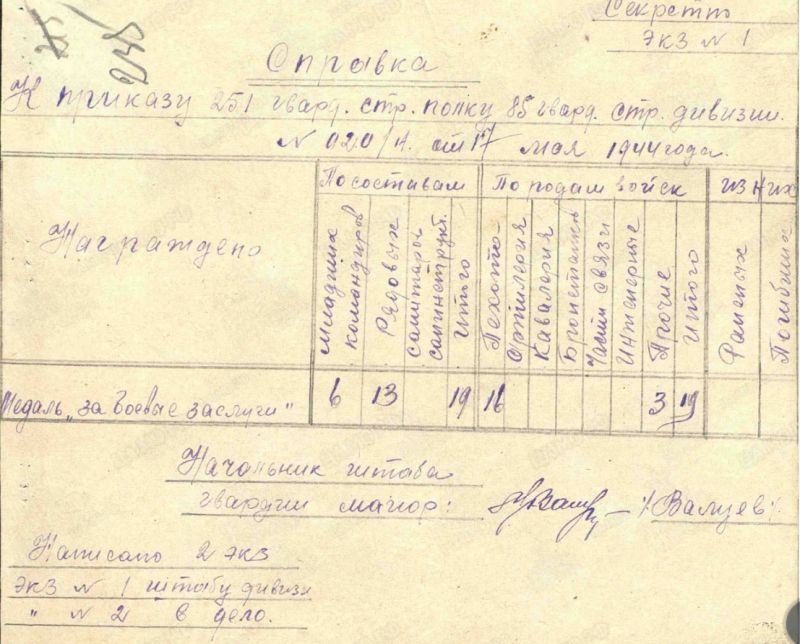 Секретно
Экз N 1
245
Справка
К приказу 251 гвард. стр. полку 85 гвард. стр. дивизии.
N 020/н. от 17 мая 1944 года.
Награждено
По составам
По родам войск
из них
Младших командиров
Рядовых
санитаров санинструкт.
итого
Пехота
Артилерия
Кавалерия
Бронетанк
Части связи
Инженерные
Прочие
итого
Раненых
Погибших
Медаль „за боевые заслуги" 6 13 19 16 3 19
Начальник штаба
гвардии маиор: — /Валуев/.
Написано 2 экз
Экз N 1 штабу дивизи
" N 2 в дело.